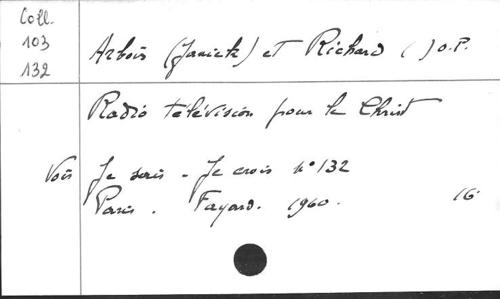 Coll.
103
132
Arbois (Janick) et Richard ( ) O.P.
Radio télévision pour le Christ
Voir Je sais - Je crois n° 132
Paris. Fayard. 1960. 16